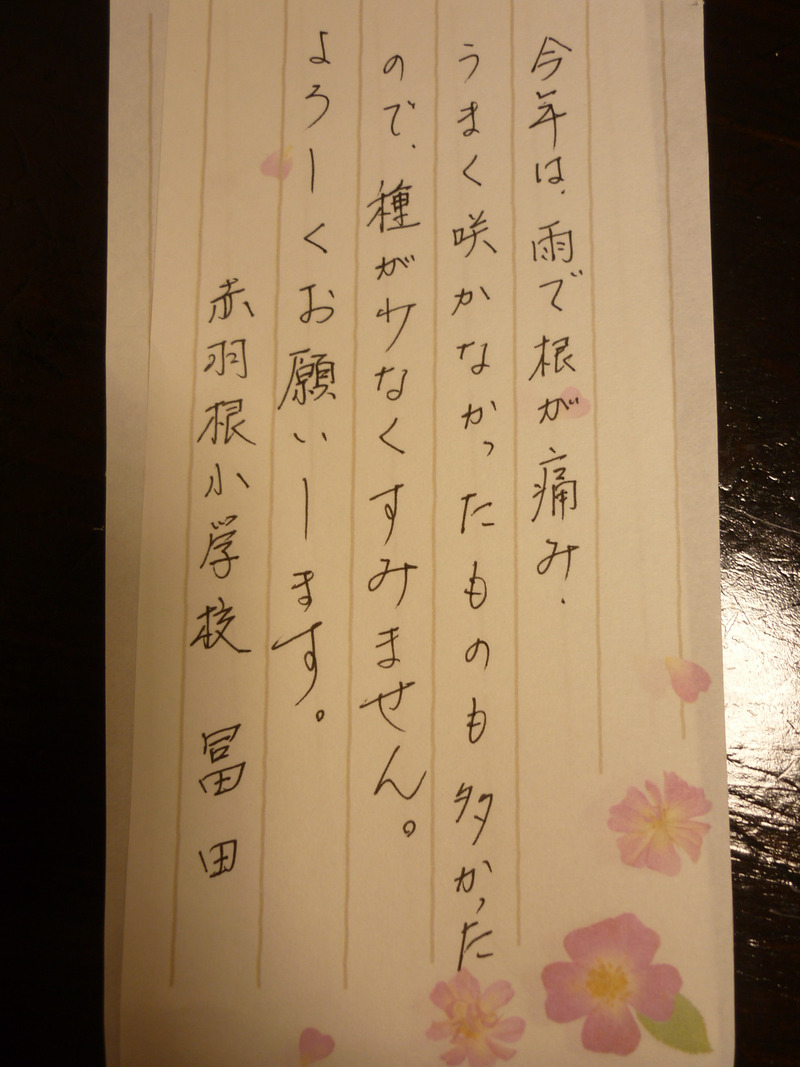 今年は、雨で根が痛み、
うまく咲かなかったものも多かった
ので、種が少なくすみません。
よろしくお願いします。
赤羽根小学校 冨田